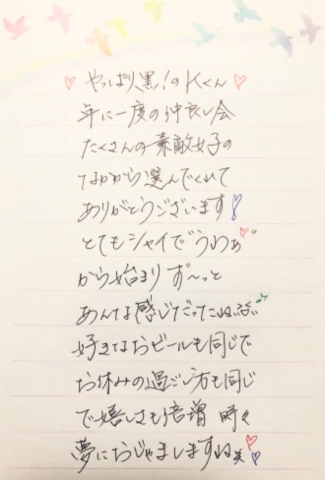 やっぱり黒!のKくん
年に一度の仲良し会
たくさんの素敵女子の
なかから選んでくれて
ありがとうございます!
とてもシャイで"うわぁ"
から始まり ず〜っと
あんな感じだったね
好きなおビールも同じで
お休みの過ごし方も同じ
で嬉しさも倍増 時々
夢におじゃましますね笑